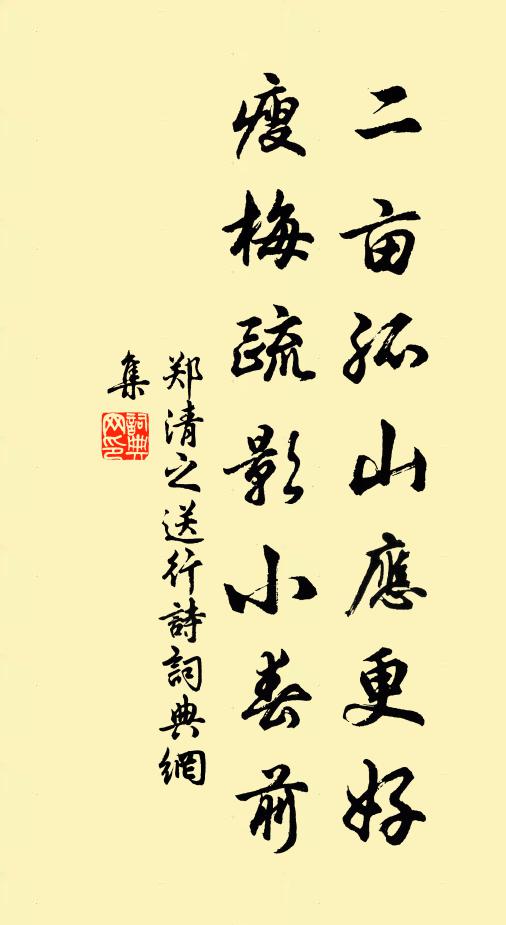 二亩孤山應更好
瘦梅疏影小春前
郑清之送行詩詞典網
集
詞典
网印